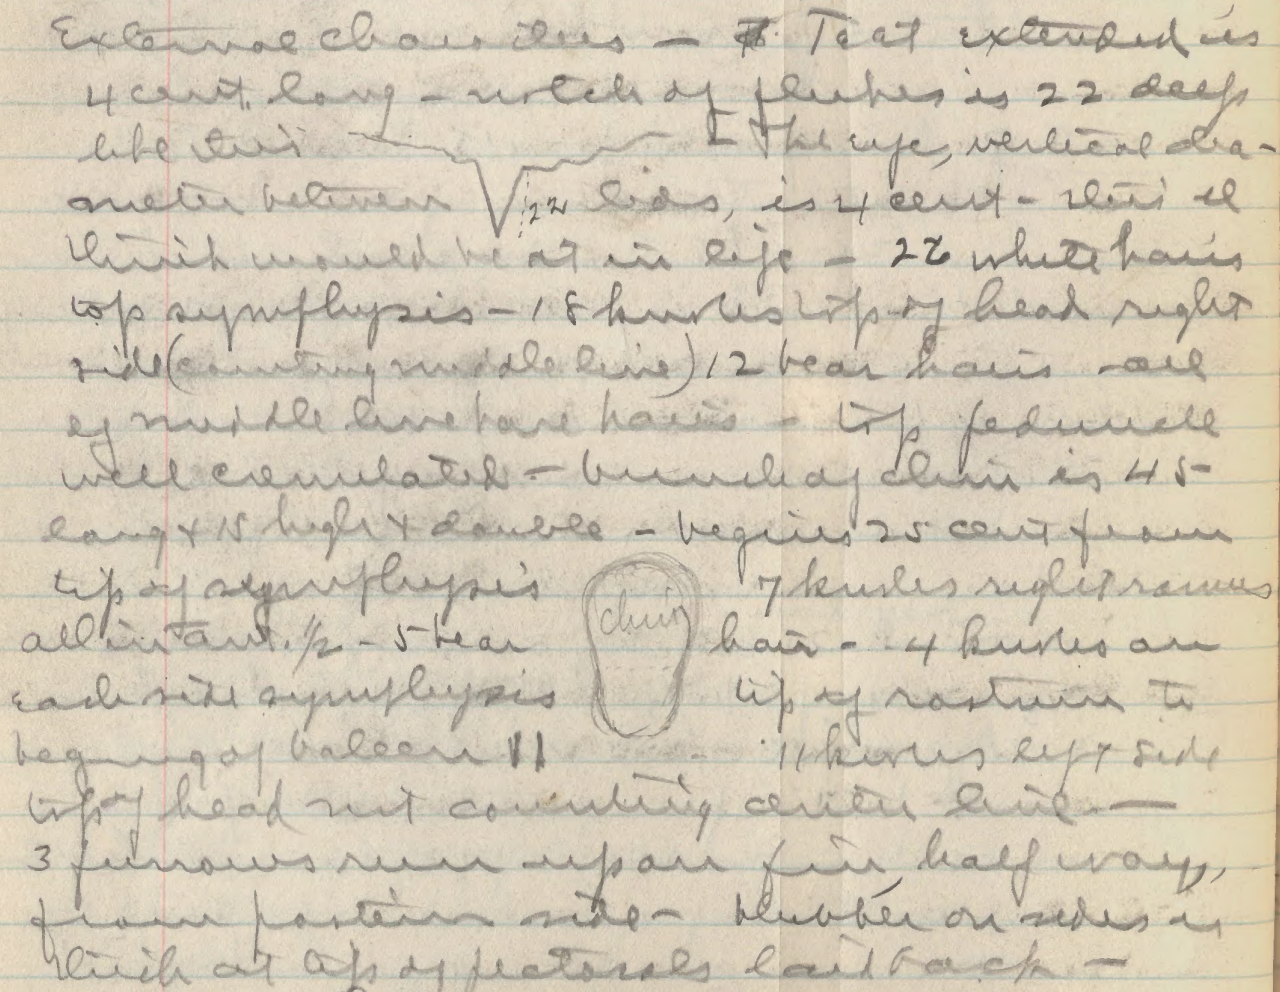 External characters — Teat extended is
4 cent. long – notch of flukes is 22 deep
like this – The eye, vertical dia-
meter between 22 lids, is 4 cent – this I
think would be at in life – 22 white hairs
top symphysis – 18 knobs top of head right
side (counting middle line) 12 bear hairs – all
of middle line have hairs – top peduncle
well crenulated – bunch of chin is 45
long & 15 high & double – begins 25 cent from
tip of symphysis 7 knobs right ramus
chin
all in ant. 1/2 – 5 bear hair – 4 knobs on
each side symphysis tip of rostrum to
begining of baleen 11 11 knobs left side
top of head not counting center line —
3 furrows run up on fin, half way,
from posterior side – blubber on sides is
thick at tips of pectorals laid back –